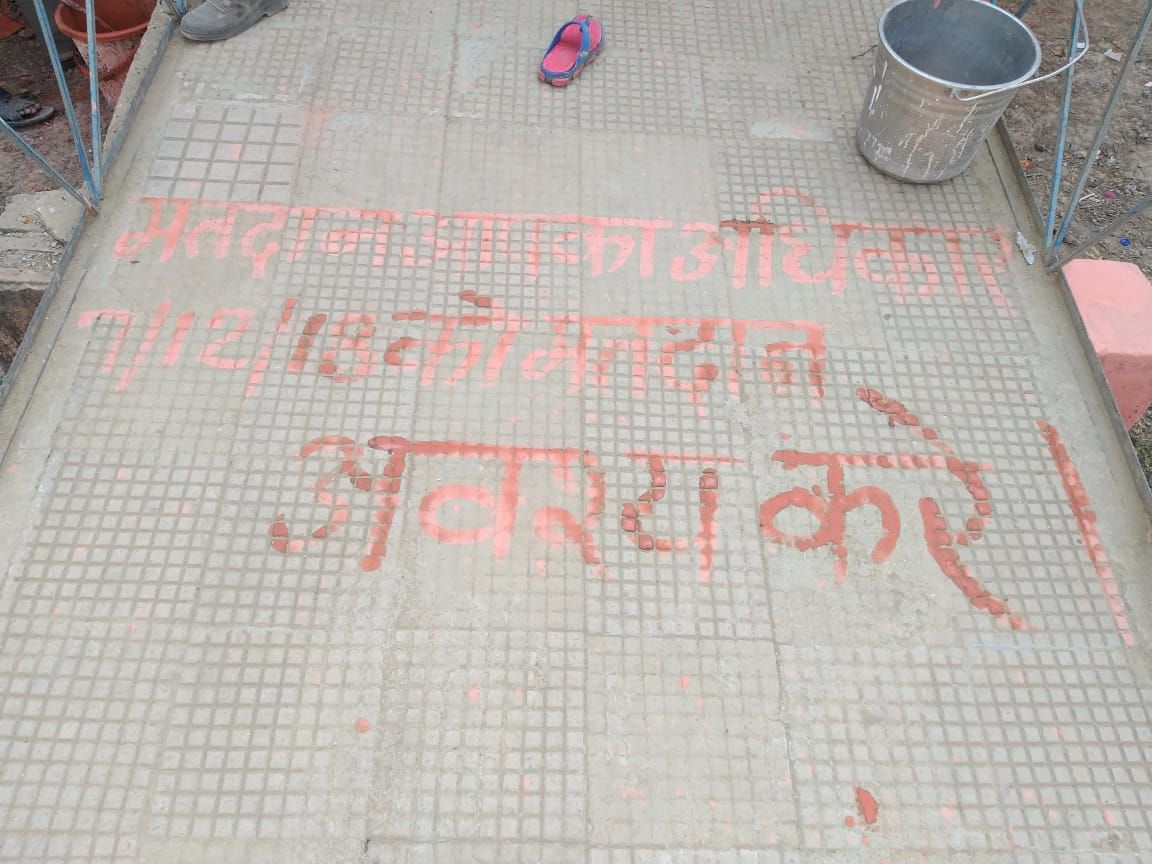 मतदान आपका अधिकार
7/12/18 को मतदान
अवश्य करे।